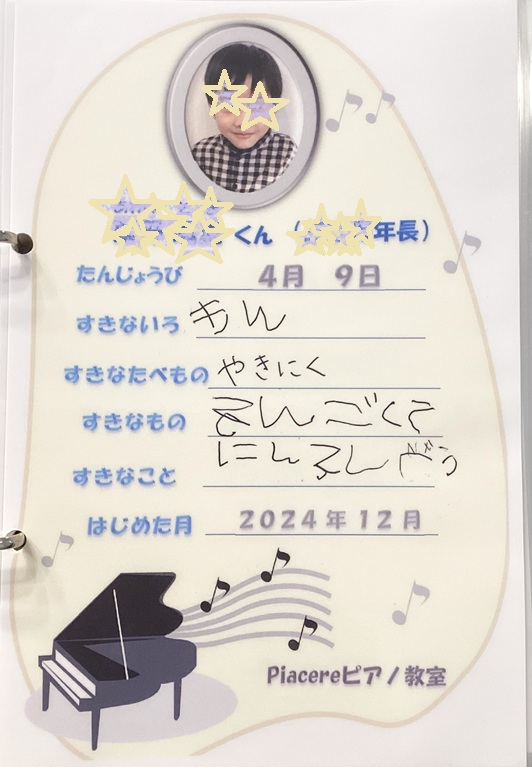 くん ( 年長)
たんじょうび 4月 9日
すきないろ きん
すきなたべもの やきにく
すきなもの
すきなこと
はじめた月 2024年12月
Piacereピアノ教室